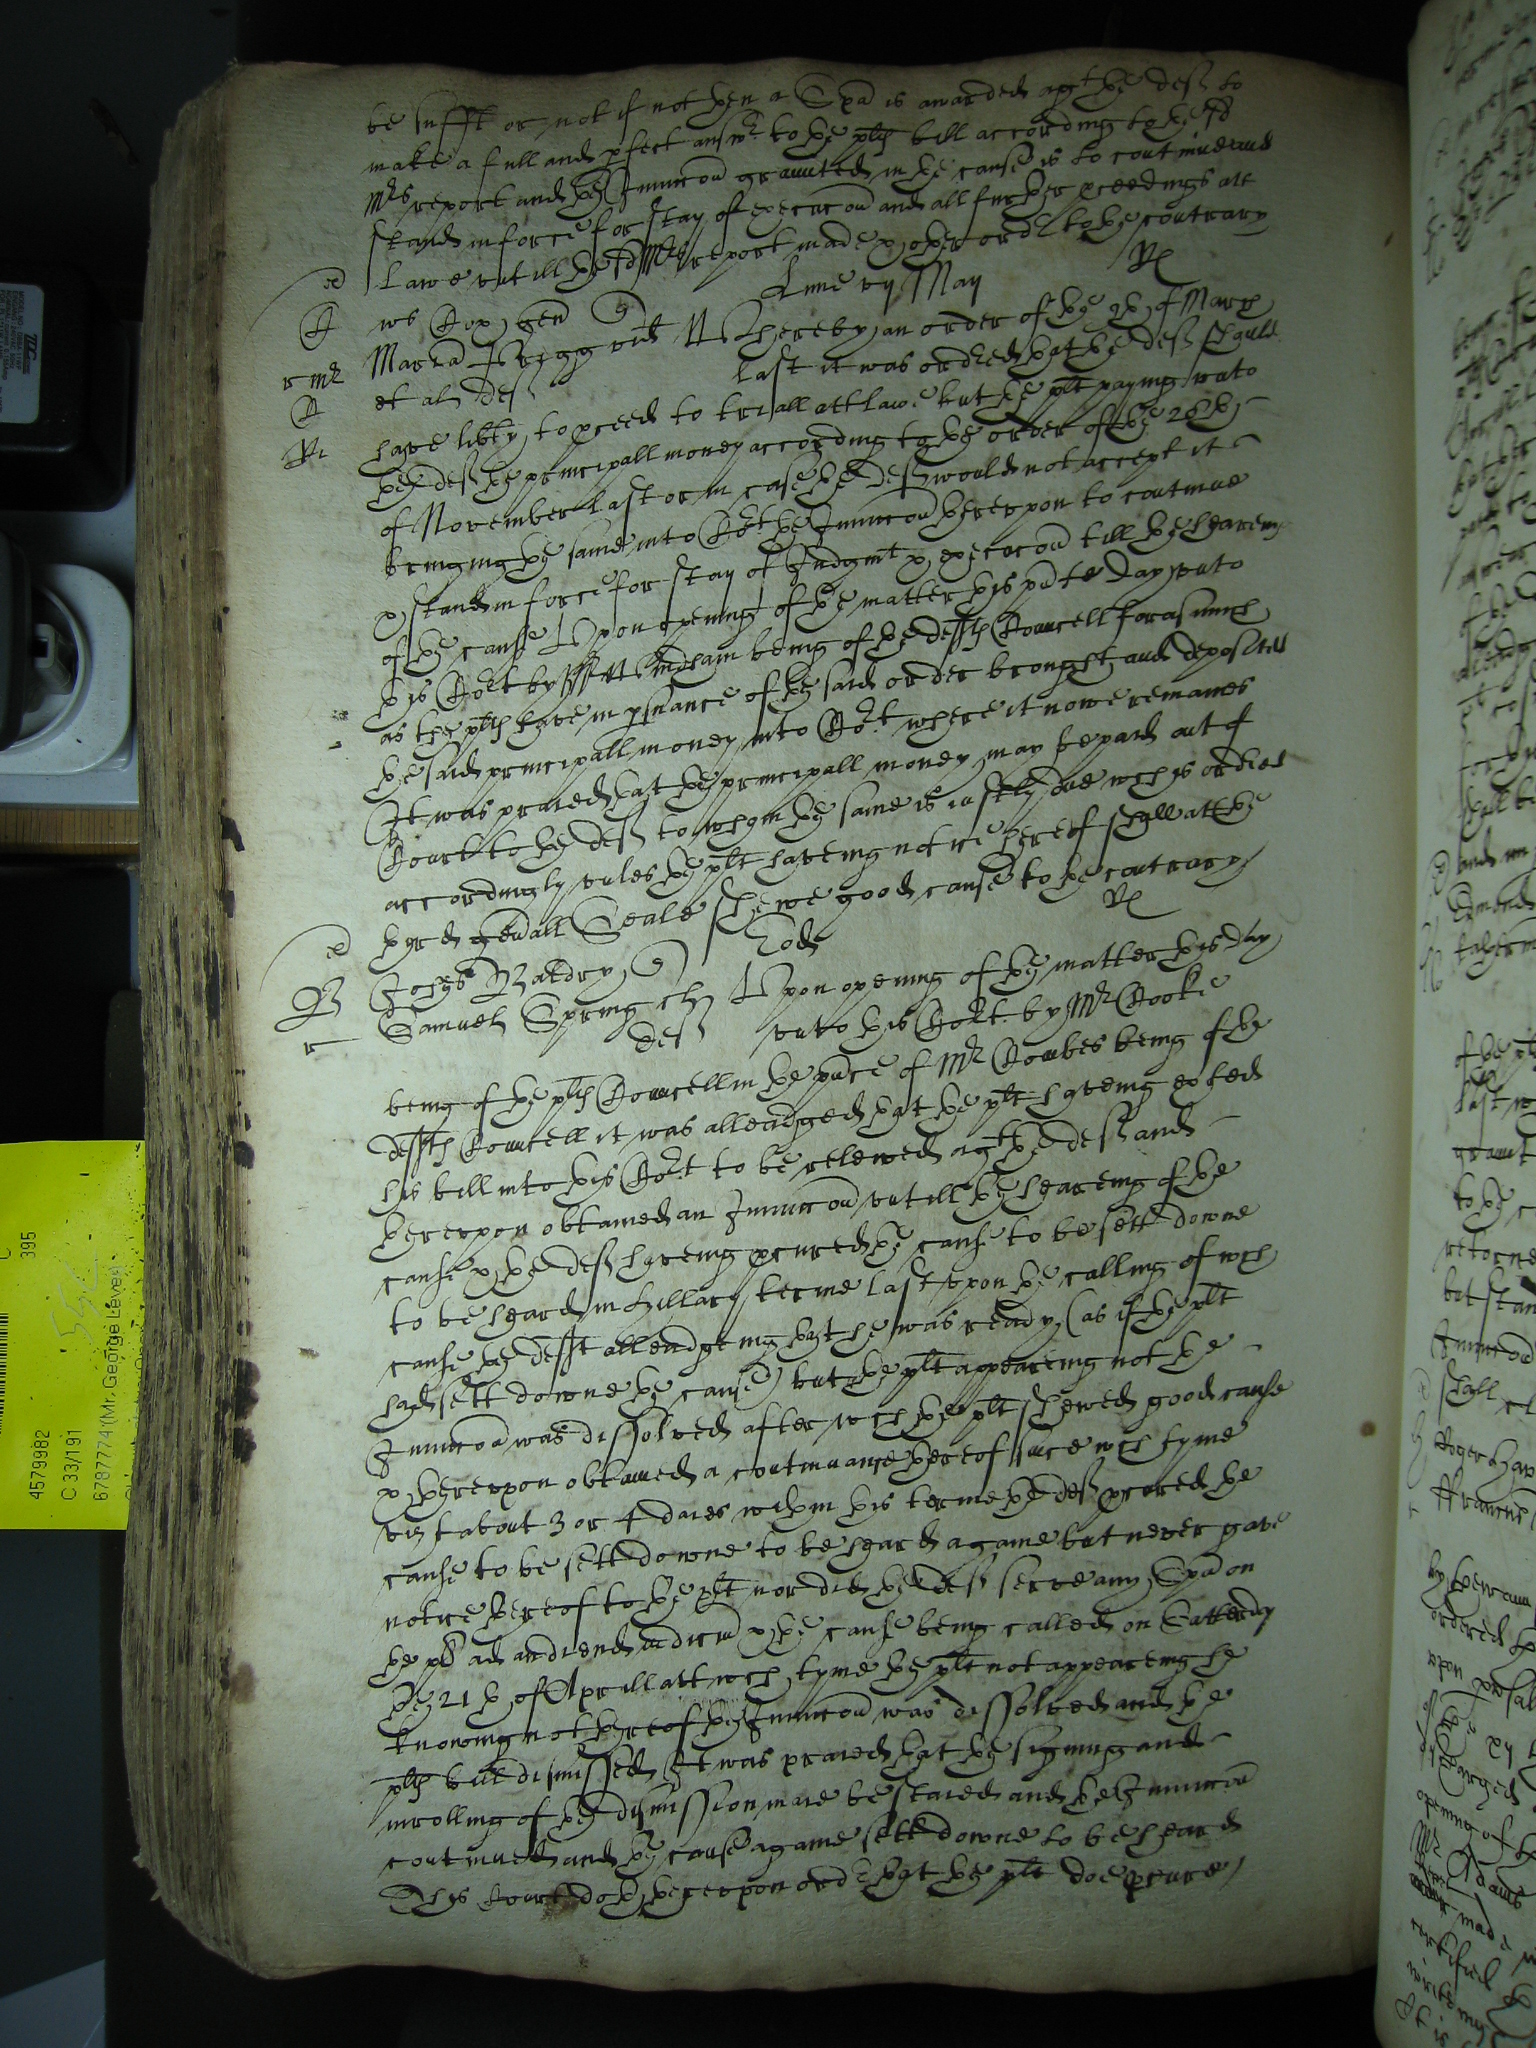 be suffit or not if not then a Spa is awarded agt the deft to
make a full and pfect answr to the plts bill according to the sd
Mrs report and the Iniuncon graunted in the cause is to continue and
stand in force for stay of execucon and all further pceedings att
Lawe untill the sd Mrs report made & other ordr to the contrary
Lune vij May
Wm Cox gen
Maria Brigg vid Whereby an order of the 9th of March
et al def last it was ordred that the deft should
have libty to pceed to triall att lawe but the plt paying unto
the deft the principall money according to the order of the 28th
of November last or in case the deft would not accept it
bringing the same into Cort the Iniuncon thereupon to continue
& stand in force for stay of Iudgmt & execucon till the heareing
of the cause Upon opening of the matter this pnte day unto
this Cort by Mr Windham being of the defts Councell forasmuch
as the plts have in psuance of the said order brought and deposited
the said principall money into Cort where it nowe remaines
It was praied that the principall money may be paid out of
Court to the deft to whom the same is iustly due wch is ordred
accordingly unles the plt haveing notice hereof shall att the
third genall Seale shewe good cause to the contrary
Eod
Iohes Baldry
Samuel Spring cler Upon opening of the matter this day
def unto this Cort by Mr Cooke
being of the plts Councell in the pnce of Mr Combes being of the
defts Councell it was alleadged that the plt haveing exhed
his bill into this Cort to be releived agt the deft and
thereupon obtained an Iniuncon untill the heareing of the
cause & the deft haveing pcured the cause to be sett downe
to be heard in Hillary terme last upon the calling of wch
cause the deft alleadgeing that he was ready (as if the plt
had sett downe the cause) but the plt appeareing not the
Iniuncon was dissolved after wch the plt shewed good cause
& thereupon obtained a continuance thereof since wch tyme
vizt about 3 or 4 daies within this terme the deft pcured the
cause to be sett downe to be heard againe but never gave
notice thereof to the plt nor did the deft serve any Spa on
the plt ad audiend iudiciu & the cause being called on Satterday
the 21th of Aprill att wch tyme the plt not appeareing he
knowing not thereof the Iniuncon was dissolved and the
plts bill dismissed It was praied that the signing and
inrolling of the dismission maie be staied and the Iniuncon
continued and the cause againe sett downe to be heard
This Court doth thereupon ordr that the plt doe pcure
4579982
C 33/191
6787774 (Mr. George Leveri
395